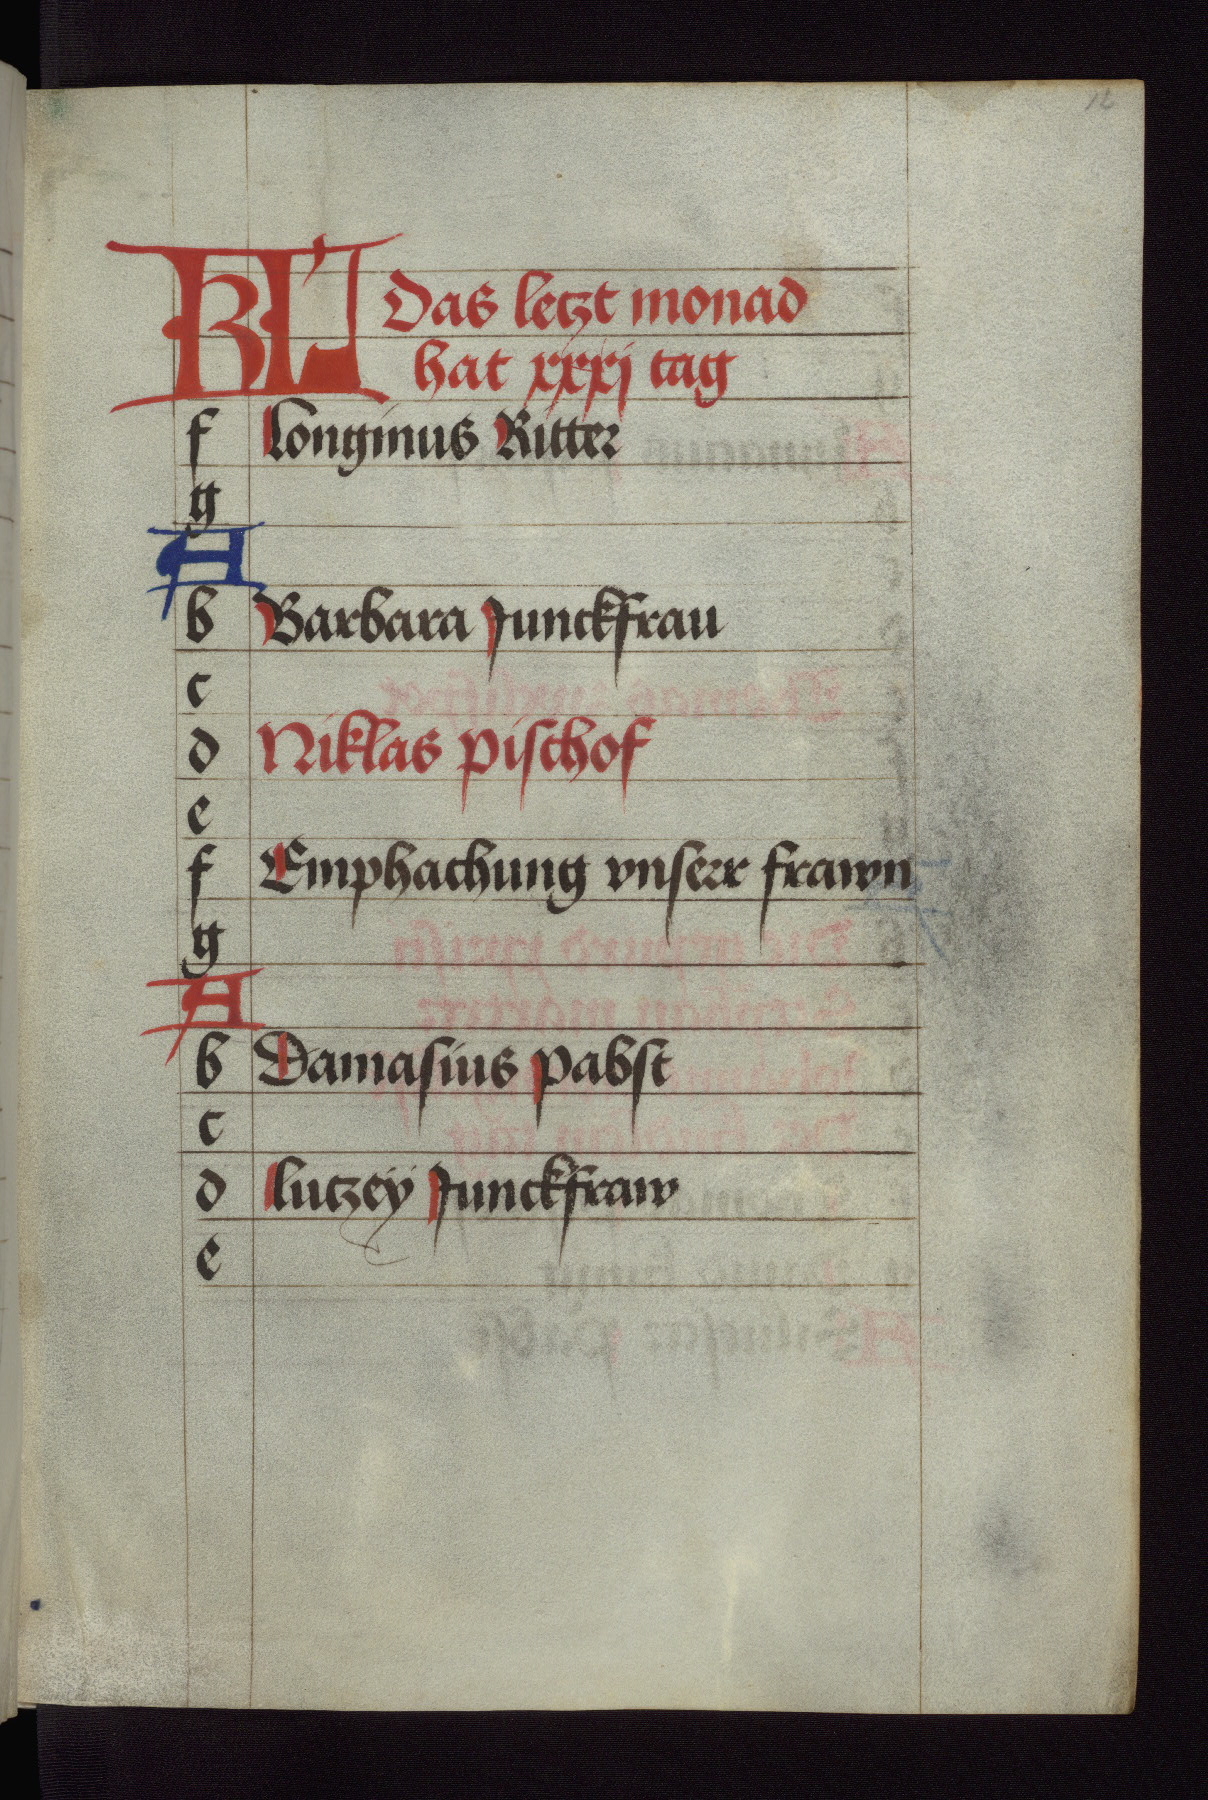 12
KL Das letzt monad
hat xxxj tag
f Longinus Ritter
g
A
b Barbara Junckfrau
c
d Niklas pischof
e
f Emphachung vnserr frawn
g
A
b Damasius pabst
c
d lutzey Junckfraw
e